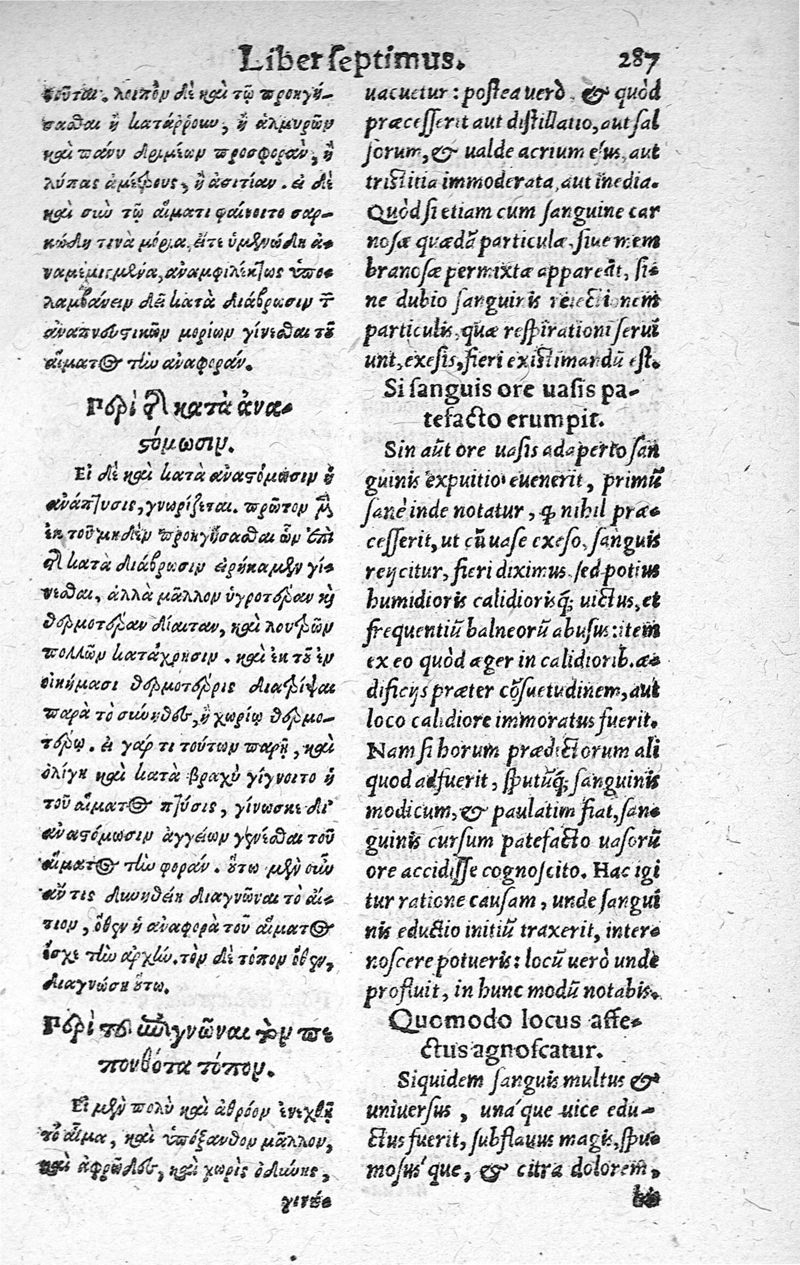 Liber septimus. 287
φοῦται. λοιπὸν δὲ καὶ τῷ προηγή-
σαθαι ἢ κατάῤῥουν, ἢ ἁλμυρῶν
καὶ πάνυ δριμέων προσφορὰν, ἢ
λύπας ἀμέτρους, ἢ ἀσιτίαν. εἰ δὲ
καὶ σὺν τῷ αἵματι φαίνοιτο σαρ-
κώδη τινὰ μόρια, εἴτε ὑμενώδη ἀ-
ναμεμιγμένα, ἀναμφιλέκτως ὑπο-
λαμβάνειν δεῖ κατὰ διάβρωσιν τ
ἀναπνευστικῶν μορίων γίνεσθαι τοῦ
αἵματος τὴν ἀναφοράν.
Περὶ τῆ κατὰ ἀνα-
στόμωσιν.
Εἰ δὲ καὶ κατὰ ἀναστόμωσιν ἡ
ἀνάπτυσις, γνωρίζεται. πρῶτον μὲν
ἐκ τοῦ μηδὲν προηγήσασθαι ὧν ἐπὶ
τῆ κατὰ διάβρωσιν εἰρήκαμεν γί-
νεσθαι, ἀλλὰ μᾶλλον ὑγροτέραν καὶ
θερμοτέραν δίαιταν, καὶ λουτρῶν
πολλῶν κατάχρησιν. καὶ ἐκ τοῦ ἐν
οἰκήμασι θερμοτέροις διατρίψαι
παρὰ τὸ σύνηθες, ἢ χωρίῳ θερμο-
τέρῳ. εἰ γάρ τι τούτων παρῇ, καὶ
ὀλίγη καὶ κατὰ βραχὺ γίγνοιτο ἡ
τοῦ αἵματος πτύσις, γίνωσκε δι'
ἀναστόμωσιν ἀγγείων γενέσθαι τοῦ
αἵματος τὴν φοράν. οὕτω μὲν οὖν
ἄν τις δυνηθείη διαγνῶναι τὸ αἴ-
τιον, ὅθεν ἡ ἀναφορὰ τοῦ αἵματος
ἔσχε τὴν ἀρχὴν. τὸν δὲ τόπον ὅθεν,
διαγνώσῃ οὕτω.
Περὶ τοῦ διαγνῶναι τὸν πε
πονθότα τόπον.
Εἰ μὲν πολὺ καὶ ἀθρόον ἐνεχθῇ
τὸ αἷμα, καὶ ὑπόξανθον μᾶλλον,
καὶ ἀφρῶδες, καὶ χωρὶς ὀδύνης,
γινέ-
uacuetur: postea uerò, & quòd
præcesserit aut distillatio, aut sal
sorum, & ualde acrium esus, aut
tristitia immoderata, aut inedia.
Quòd si etiam cum sanguine car
nosæ quædã particulæ, siue mem
branosæ permixtæ appareãt, si-
ne dubio sanguinis reiectionem
particulis, quæ respirationi serui
unt, exesis, fieri existimandũ est.
Si sanguis ore uasis pa-
tefacto erumpit.
Sin aũt ore uasis adaperto san
guinis expuitio euenerit, primũ
sanè inde notatur, ꝙ nihil præ-
cesserit, ut cũ uase exeso, sanguis
reijcitur, fieri diximus, sed potius
humidioris calidiorisq́; uictus, et
frequentiũ balneorũ abusus: item
ex eo quòd æger in calidiorib. æ-
dificijs præter cõsuetudinem, aut
loco calidiore immoratus fuerit.
Nam si horum prædictorum ali
quod adfuerit, sputũq́; sanguinis
modicum, & paulatim fiat, san-
guinis cursum patefacto uasorũ
ore accidisse cognoscito. Hac igi
tur ratione causam, unde sangui
nis eductio initiũ traxerit, inter-
noscere potueris: locũ uerò unde
profluit, in hunc modũ notabis.
Quomodo locus affe-
ctus agnoscatur.
Siquidem sanguis multus &
uniuersus, unáque uice edu-
ctus fuerit, subflauus magis, spu-
mosúsque, & citra dolorem,